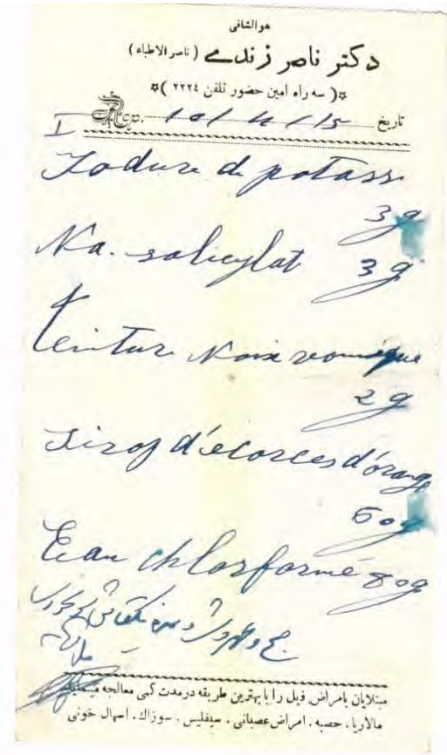 هوالشافی
دکتر ناصر زندی (ناصر الاطباء)
(سه راه امین حضور تلفن ٢٢٢٤)
تاریخ 15 / 4 / 10 Rcp.
I
Iodure de potass
3 g
Na. salicylat 3 g
teinture Noix vomique
2 g
Sirop d'écorces d'orange
60 g
Eau chloroformé 80 g
مبتلایان بامراض ذیل را با بهترین طریقه در مدت کمی معالجه مینماید
مالاریا. حصبه. امراض عصبانی. سیفلیس. سوزاك. اسهال خونی